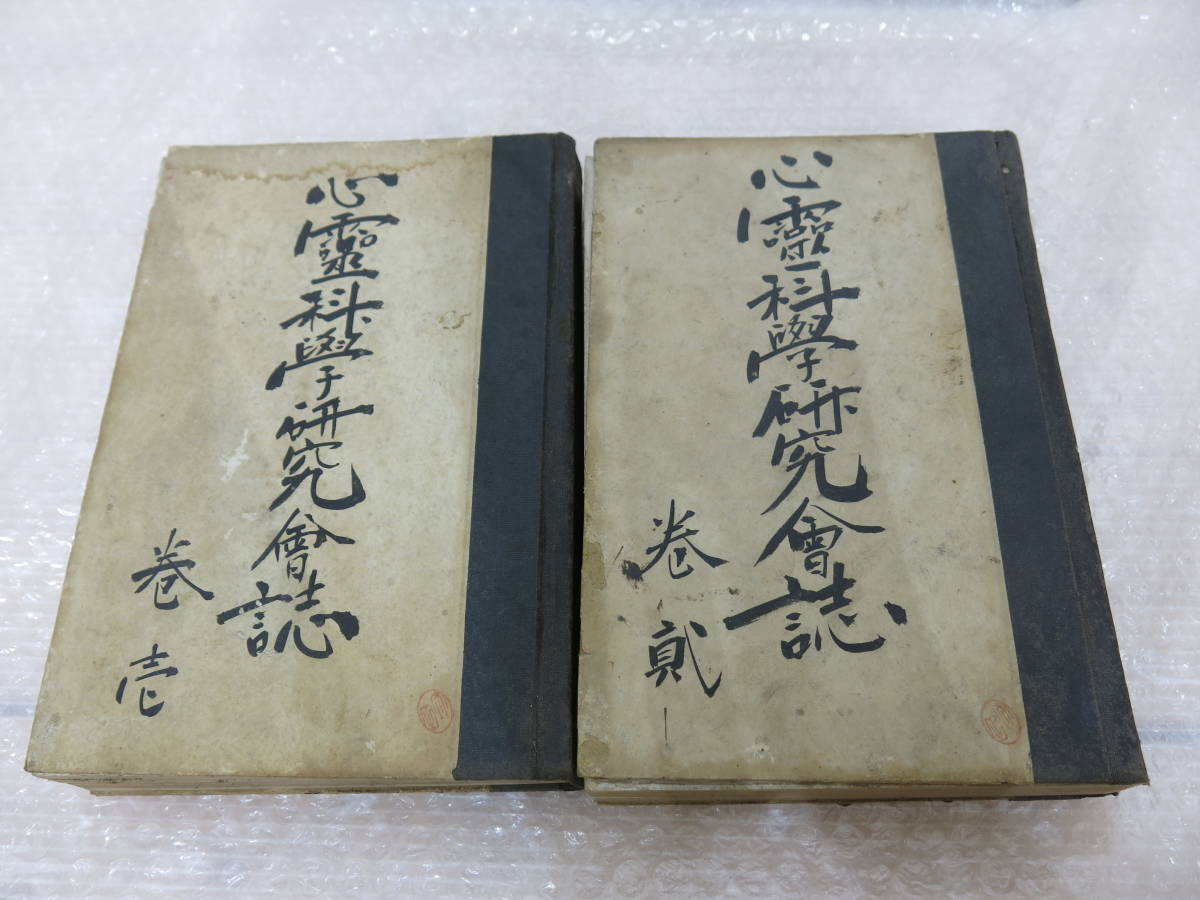 心靈科學研究會誌
巻壱
心靈科學研究會誌
巻貳